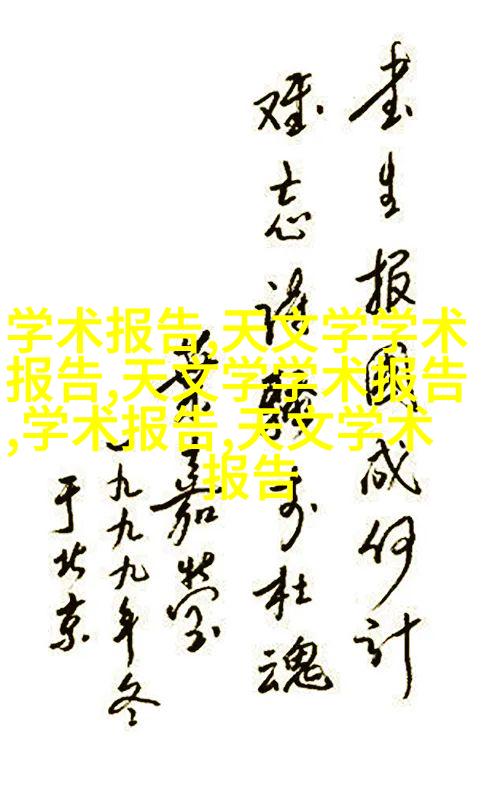 学术报告,天文学学术
报告,天文学学术报告
,学术报告,天文学术
报告
书生报國成何计
难忘诗骚李杜魂
葉嘉莹
一九九九年冬
于北京